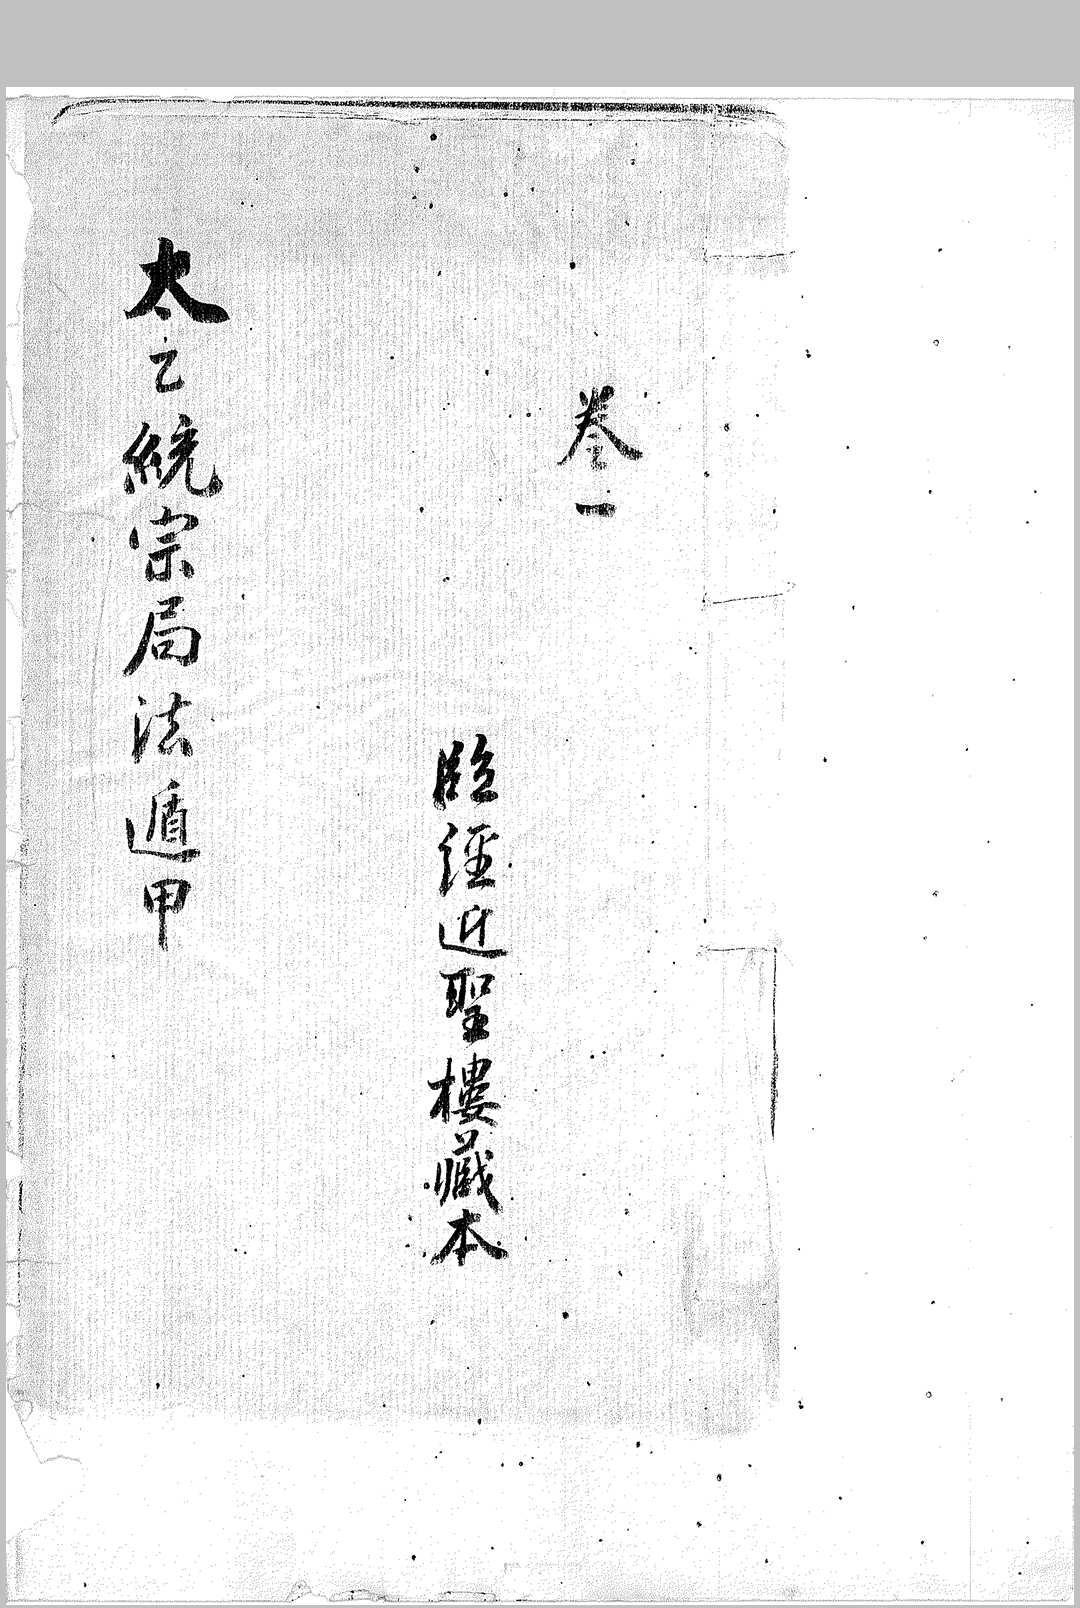 太乙統宗局法遁甲
卷一
臨經近聖樓藏本